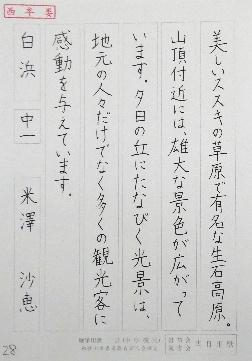 美しいススキの草原で有名な生石高原。
山頂付近には、雄大な景色が広がって
います。夕日の丘にたなびく光景は、
地元の人々だけでなく多くの観光客に
感動を与えています。
白浜 中一 米澤 沙恵
28